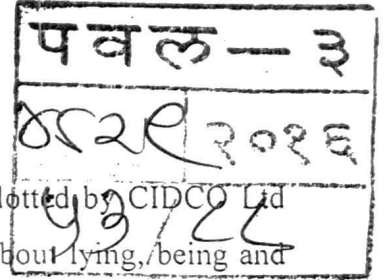 पवल — ३
२०१६
lotted by CIDCO Ltd
५३/८८
bout lying, being and